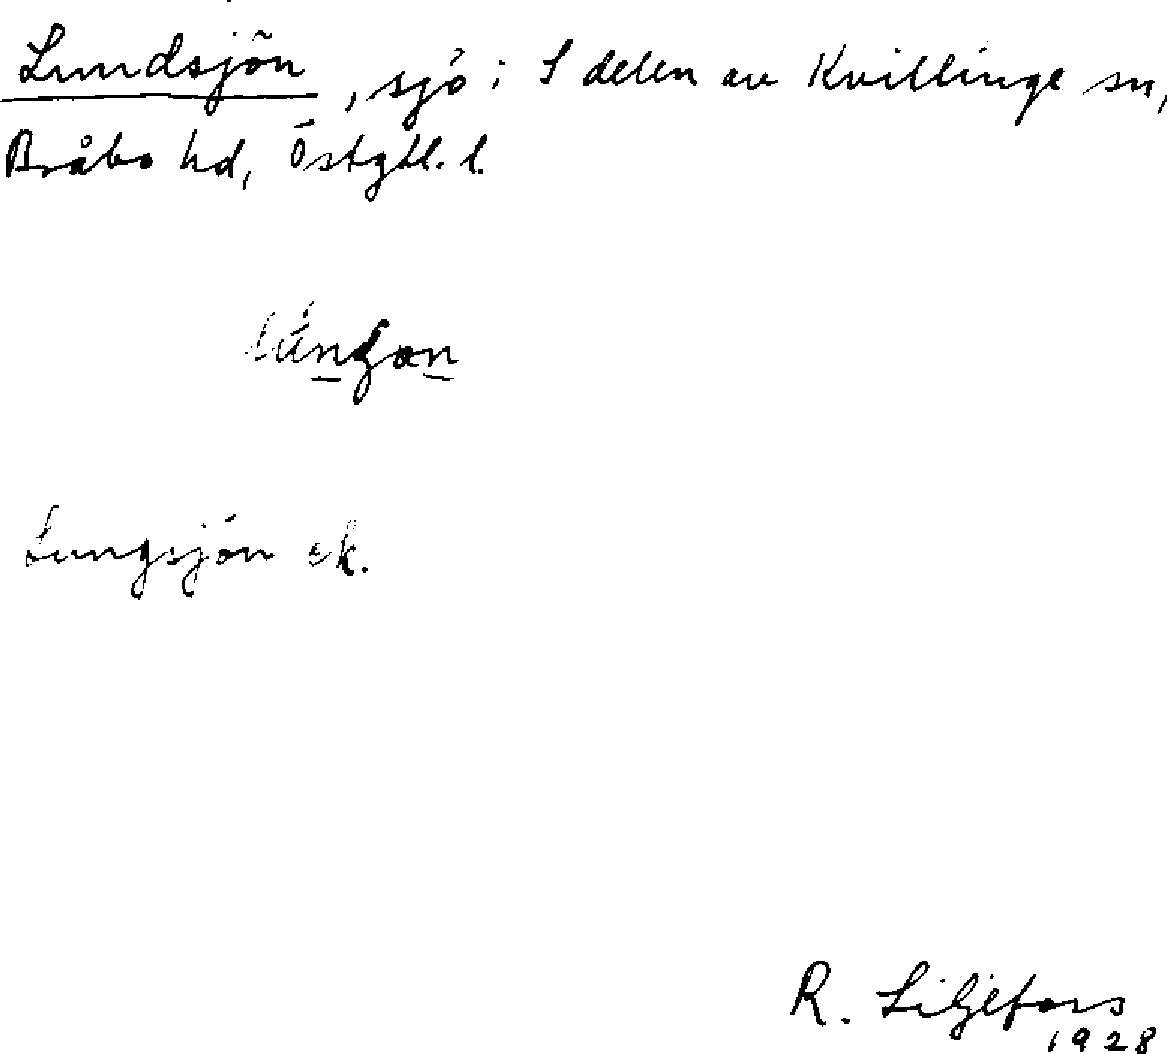 Lundsjön, sjö i S delen av Kvillinge sn,
Bråbo hd, Östgtl. l.
Lungsjön ek.
R. Liljefors
1928